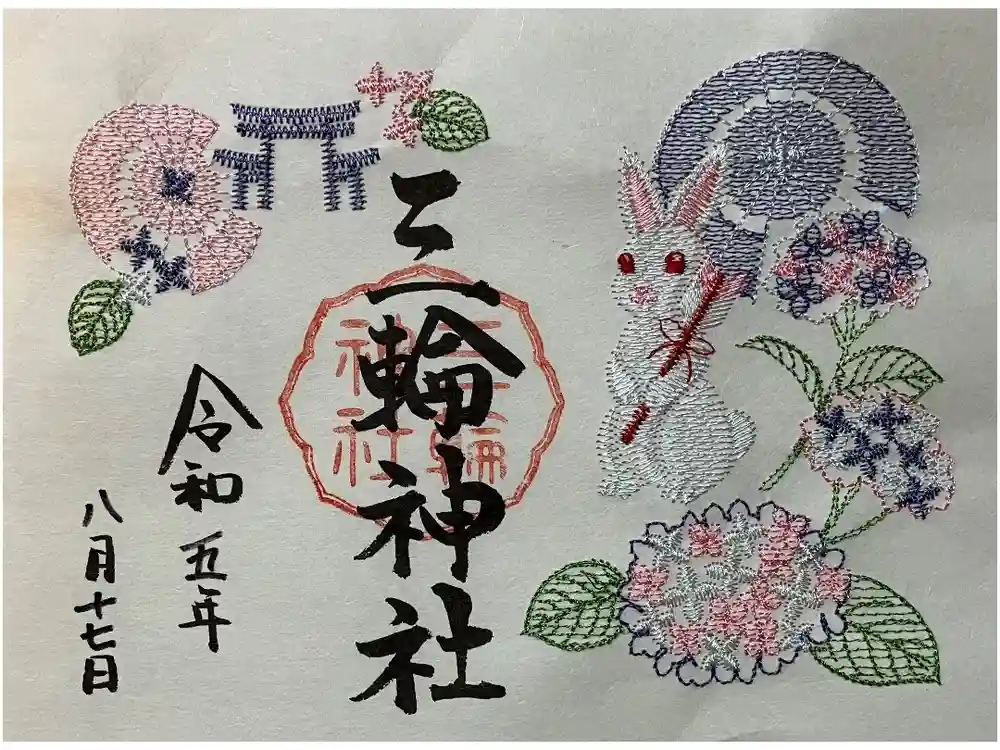 三輪神社
三輪
神社
令和五年
八月十七日